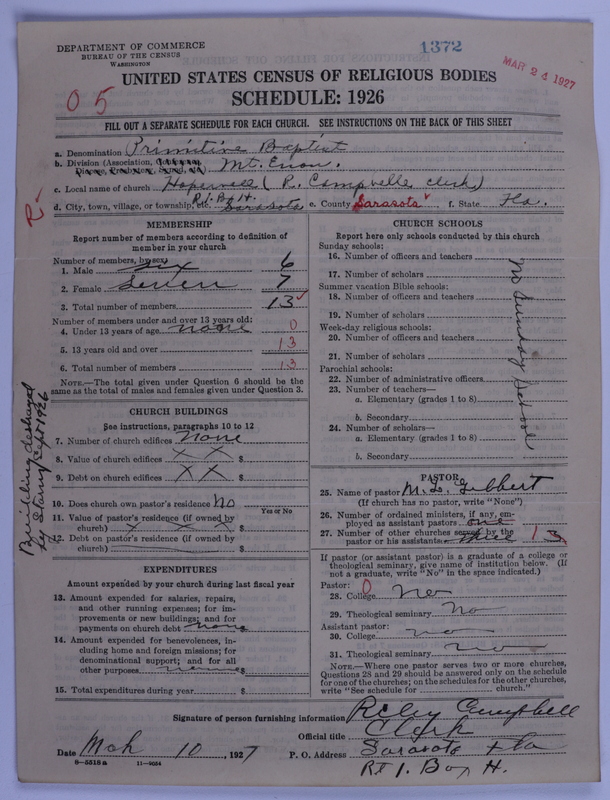 DEPARTMENT OF COMMERCE
BUREAU OF THE CENSUS
WASHINGTON
1372
MAR 24 1927
UNITED STATES CENSUS OF RELIGIOUS BODIES
05
SCHEDULE: 1926
FILL OUT A SEPARATE SCHEDULE FOR EACH CHURCH. SEE INSTRUCTIONS ON THE BACK OF THIS SHEET
a. Denomination Primitive Baptist
b. Division (Association, Mt. Enon.
c. Local name of church Hopewell (R. Campbelle clerk)
Rt. 1. Box H.
d. City, town, village, or township, etc. Sarasota e. County Sarasota f. State Fla.
R-
MEMBERSHIP
Report number of members according to definition of member in your church
Number of members, by sex:
1. Male six 6
2. Female Seven 7
3. Total number of members 13
Number of members under and over 13 years old:
4. Under 13 years of age none 0
5. 13 years old and over 13
6. Total number of members 13
NOTE.—The total given under Question 6 should be the same as the total of males and females given under Question 3.
CHURCH BUILDINGS
See instructions, paragraphs 10 to 12
7. Number of church edifices none
8. Value of church edifices X X $
9. Debt on church edifices X X $
10. Does church own pastor's residence No
Yes or No
11. Value of pastor's residence (if owned by church) x x x $
12. Debt on pastor's residence (if owned by church) $
Building destroyed by Storm Sept 1926
EXPENDITURES
Amount expended by your church during last fiscal year
13. Amount expended for salaries, repairs, and other running expenses; for improvements or new buildings; and for payments on church debt none $
14. Amount expended for benevolences, including home and foreign missions; for denominational support; and for all other purposes none $
15. Total expenditures during year $
CHURCH SCHOOLS
Report here only schools conducted by this church
Sunday schools:
16. Number of officers and teachers
17. Number of scholars
Summer vacation Bible schools:
18. Number of officers and teachers
19. Number of scholars
Week-day religious schools:
20. Number of officers and teachers
21. Number of scholars
Parochial schools:
22. Number of administrative officers
23. Number of teachers—
a. Elementary (grades 1 to 8)
b. Secondary
24. Number of scholars—
a. Elementary (grades 1 to 8)
b. Secondary
No Sunday School
PASTOR
25. Name of pastor
(If church has no pastor, write "None")
26. Number of ordained ministers, if any, employed as assistant pastors one
27. Number of other churches served by the pastor or his assistants three 13
If pastor (or assistant pastor) is a graduate of a college or theological seminary, give name of institution below. (If not a graduate, write "No" in the space indicated.)
Pastor: 0
28. College No
29. Theological seminary No
Assistant pastor:
30. College no
31. Theological seminary no
NOTE.—Where one pastor serves two or more churches, Questions 28 and 29 should be answered only on the schedule for one of the churches; on the schedules for the other churches, write "See schedule for church."
Signature of person furnishing information Riley Campbell
Official title Clerk
Date Mch 10, 1927 P. O. Address Sarasota Fla
Rt 1. Box H.
8-5518a 11-9054